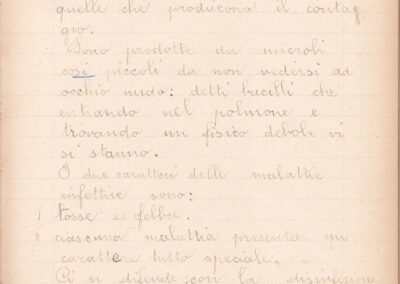 quelle che producono il contag
gio.
Sono prodotte da microbi
così piccoli da non vedersi ad
occhio nudo: detti bacilli che
entrando nel polmone e
trovando un fisico debole vi
si stanno.
I due caratteri delle malattie
infettive sono:
tosse e febbre.
ciascuna malattia presenta un
carattere tutto speciale.
Ci si difende: con la disinfezione